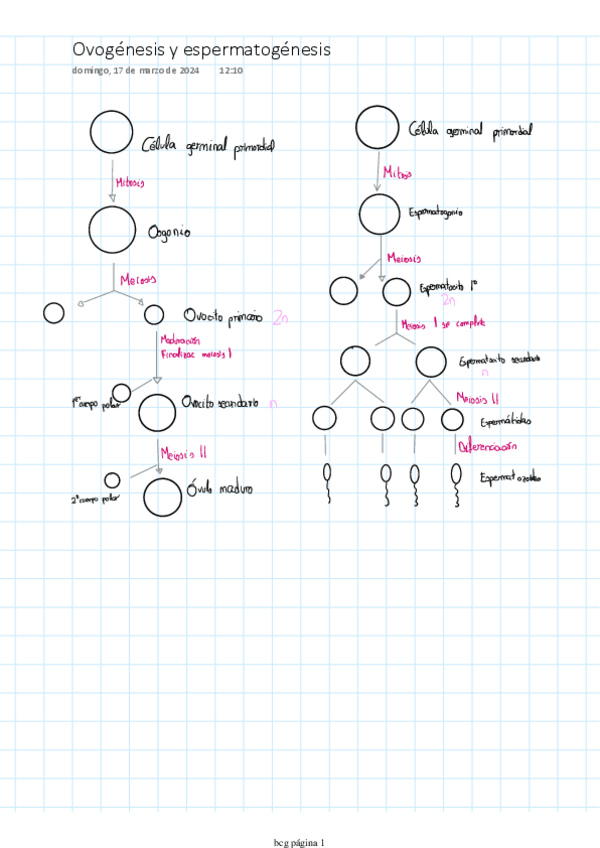 Ovogénesis y espermatogénesis
domingo, 17 de marzo de 2024 12:10
Célula germinal primordial
Mitosis
Oogonio
Meiosis
Ovocito primario 2n
Maduración
Finalizac meiosis I
1er cuerpo polar
Ovocito secundario n
Meiosis II
2º cuerpo polar
Óvulo maduro
Célula germinal primordial
Mitosis
Espermatogonio
Meiosis
Espermatocito 1º
2n
Meiosis I se completa
Espermatocito secundario
n
Meiosis II
Espermátidas
Diferenciación
Espermatozoides
bcg página 1